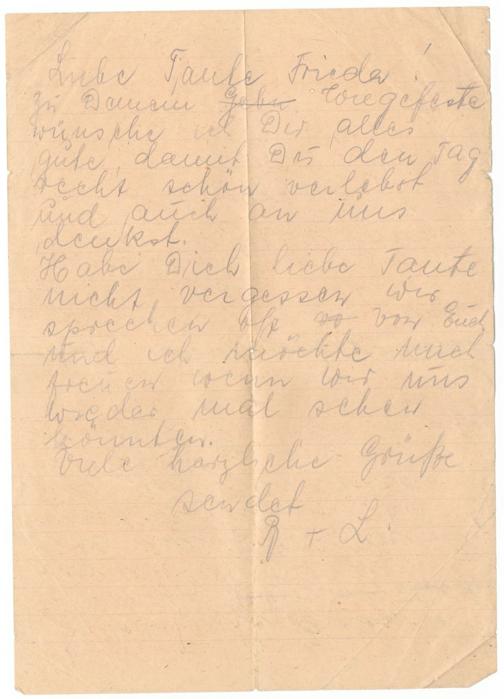 Liebe Tante Frieda!
Zu Deinem Gebu Wiegefeste
wünsche ich Dir alles
gute, damit Du den Tag
recht schön verlebst
und auch an uns
denkst.
Habe Dich liebe Tante
nicht vergessen wir
sprechen oft von Euch
und ich möchte mich
freuen wenn wir uns
wieder mal sehen
könnten.
Viele herzliche Grüße
sendet
R + L.